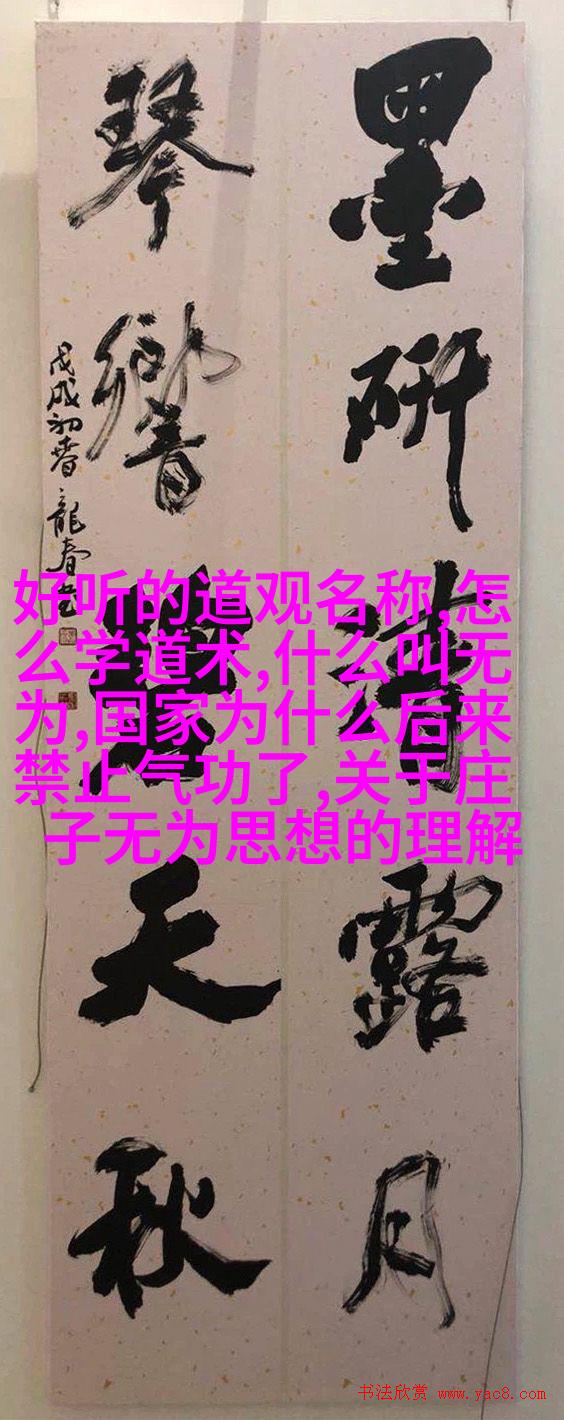 墨研清露月
琴響碧天秋
戊戌初春龍春
好听的道观名称,怎
么学道术,什么叫无
为,国家为什么后来
禁止气功了,关于庄
子无为思想的理解
书法欣赏 www.yac8.com